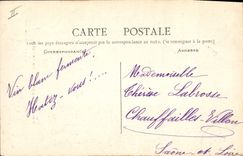 II
CARTE POSTALE
Tous les pays étrangers n'acceptent pas la correspondance au recto. (Se renseigner à la poste)
CORRESPONDANCE
ADRESSE
Vin blanc fameux!
Hatez-vous!....
Mademoiselle
Thérèse Labrosse
Chauffailles-Villon
Saône et Loire